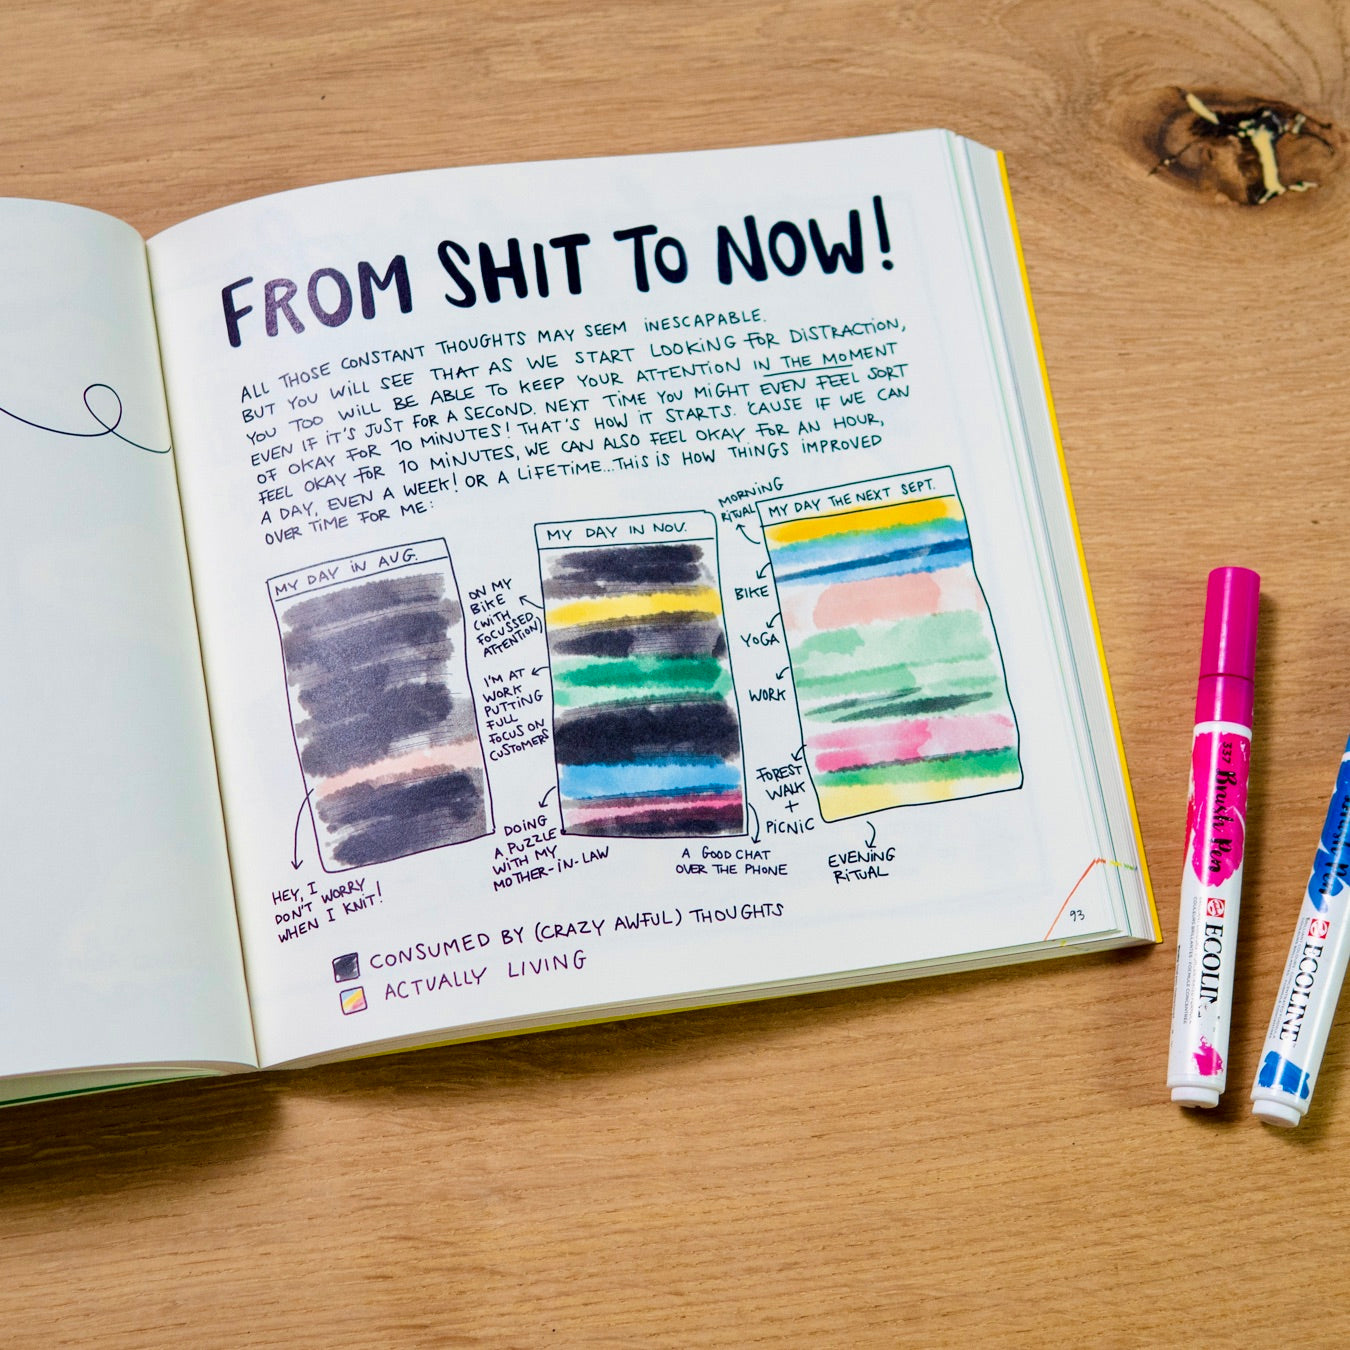 FROM SHIT TO NOW!
ALL THOSE CONSTANT THOUGHTS MAY SEEM INESCAPABLE.
BUT YOU WILL SEE THAT AS WE START LOOKING FOR DISTRACTION,
YOU TOO WILL BE ABLE TO KEEP YOUR ATTENTION IN THE MOMENT
EVEN IF IT'S JUST FOR A SECOND. NEXT TIME YOU MIGHT EVEN FEEL SORT
OF OKAY FOR 10 MINUTES! THAT'S HOW IT STARTS. 'CAUSE IF WE CAN
FEEL OKAY FOR 10 MINUTES, WE CAN ALSO FEEL OKAY FOR AN HOUR,
A DAY, EVEN A WEEK! OR A LIFETIME...THIS IS HOW THINGS IMPROVED
OVER TIME FOR ME:
MY DAY IN AUG.
HEY, I
DON'T WORRY
WHEN I KNIT!
MY DAY IN NOV.
ON MY
BIKE
(WITH
FOCUSSED
ATTENTION)
I'M AT
WORK
PUTTING
FULL
FOCUS ON
CUSTOMERS
DOING
A PUZZLE
WITH MY
MOTHER-IN-LAW
A GOOD CHAT
OVER THE PHONE
MY DAY THE NEXT SEPT.
MORNING
RITUAL
BIKE
YOGA
WORK
FOREST
WALK
+
PICNIC
EVENING
RITUAL
CONSUMED BY (CRAZY AWFUL) THOUGHTS
ACTUALLY LIVING
93
337 Brush Pen
ECOLINE
ECOLINE